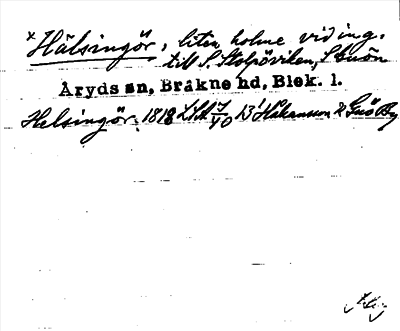 × Hälsingör, liten holme vid ing.
till S. Stolpöviken,
Åryds sn, Bräkne hd, Blek. l.
Helsingör. 1818 LSA 13¹ Håkansson Guö By